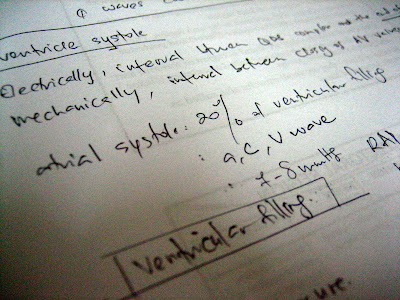 waves
ventricle systole
Electrically, interval between QRS complex and the end of
mechanically, interval between closing of AV valves
atrial systole: 20% of ventricular filling
: a, C, V wave
: 7-8 mmHg RAP
ventricular filling.